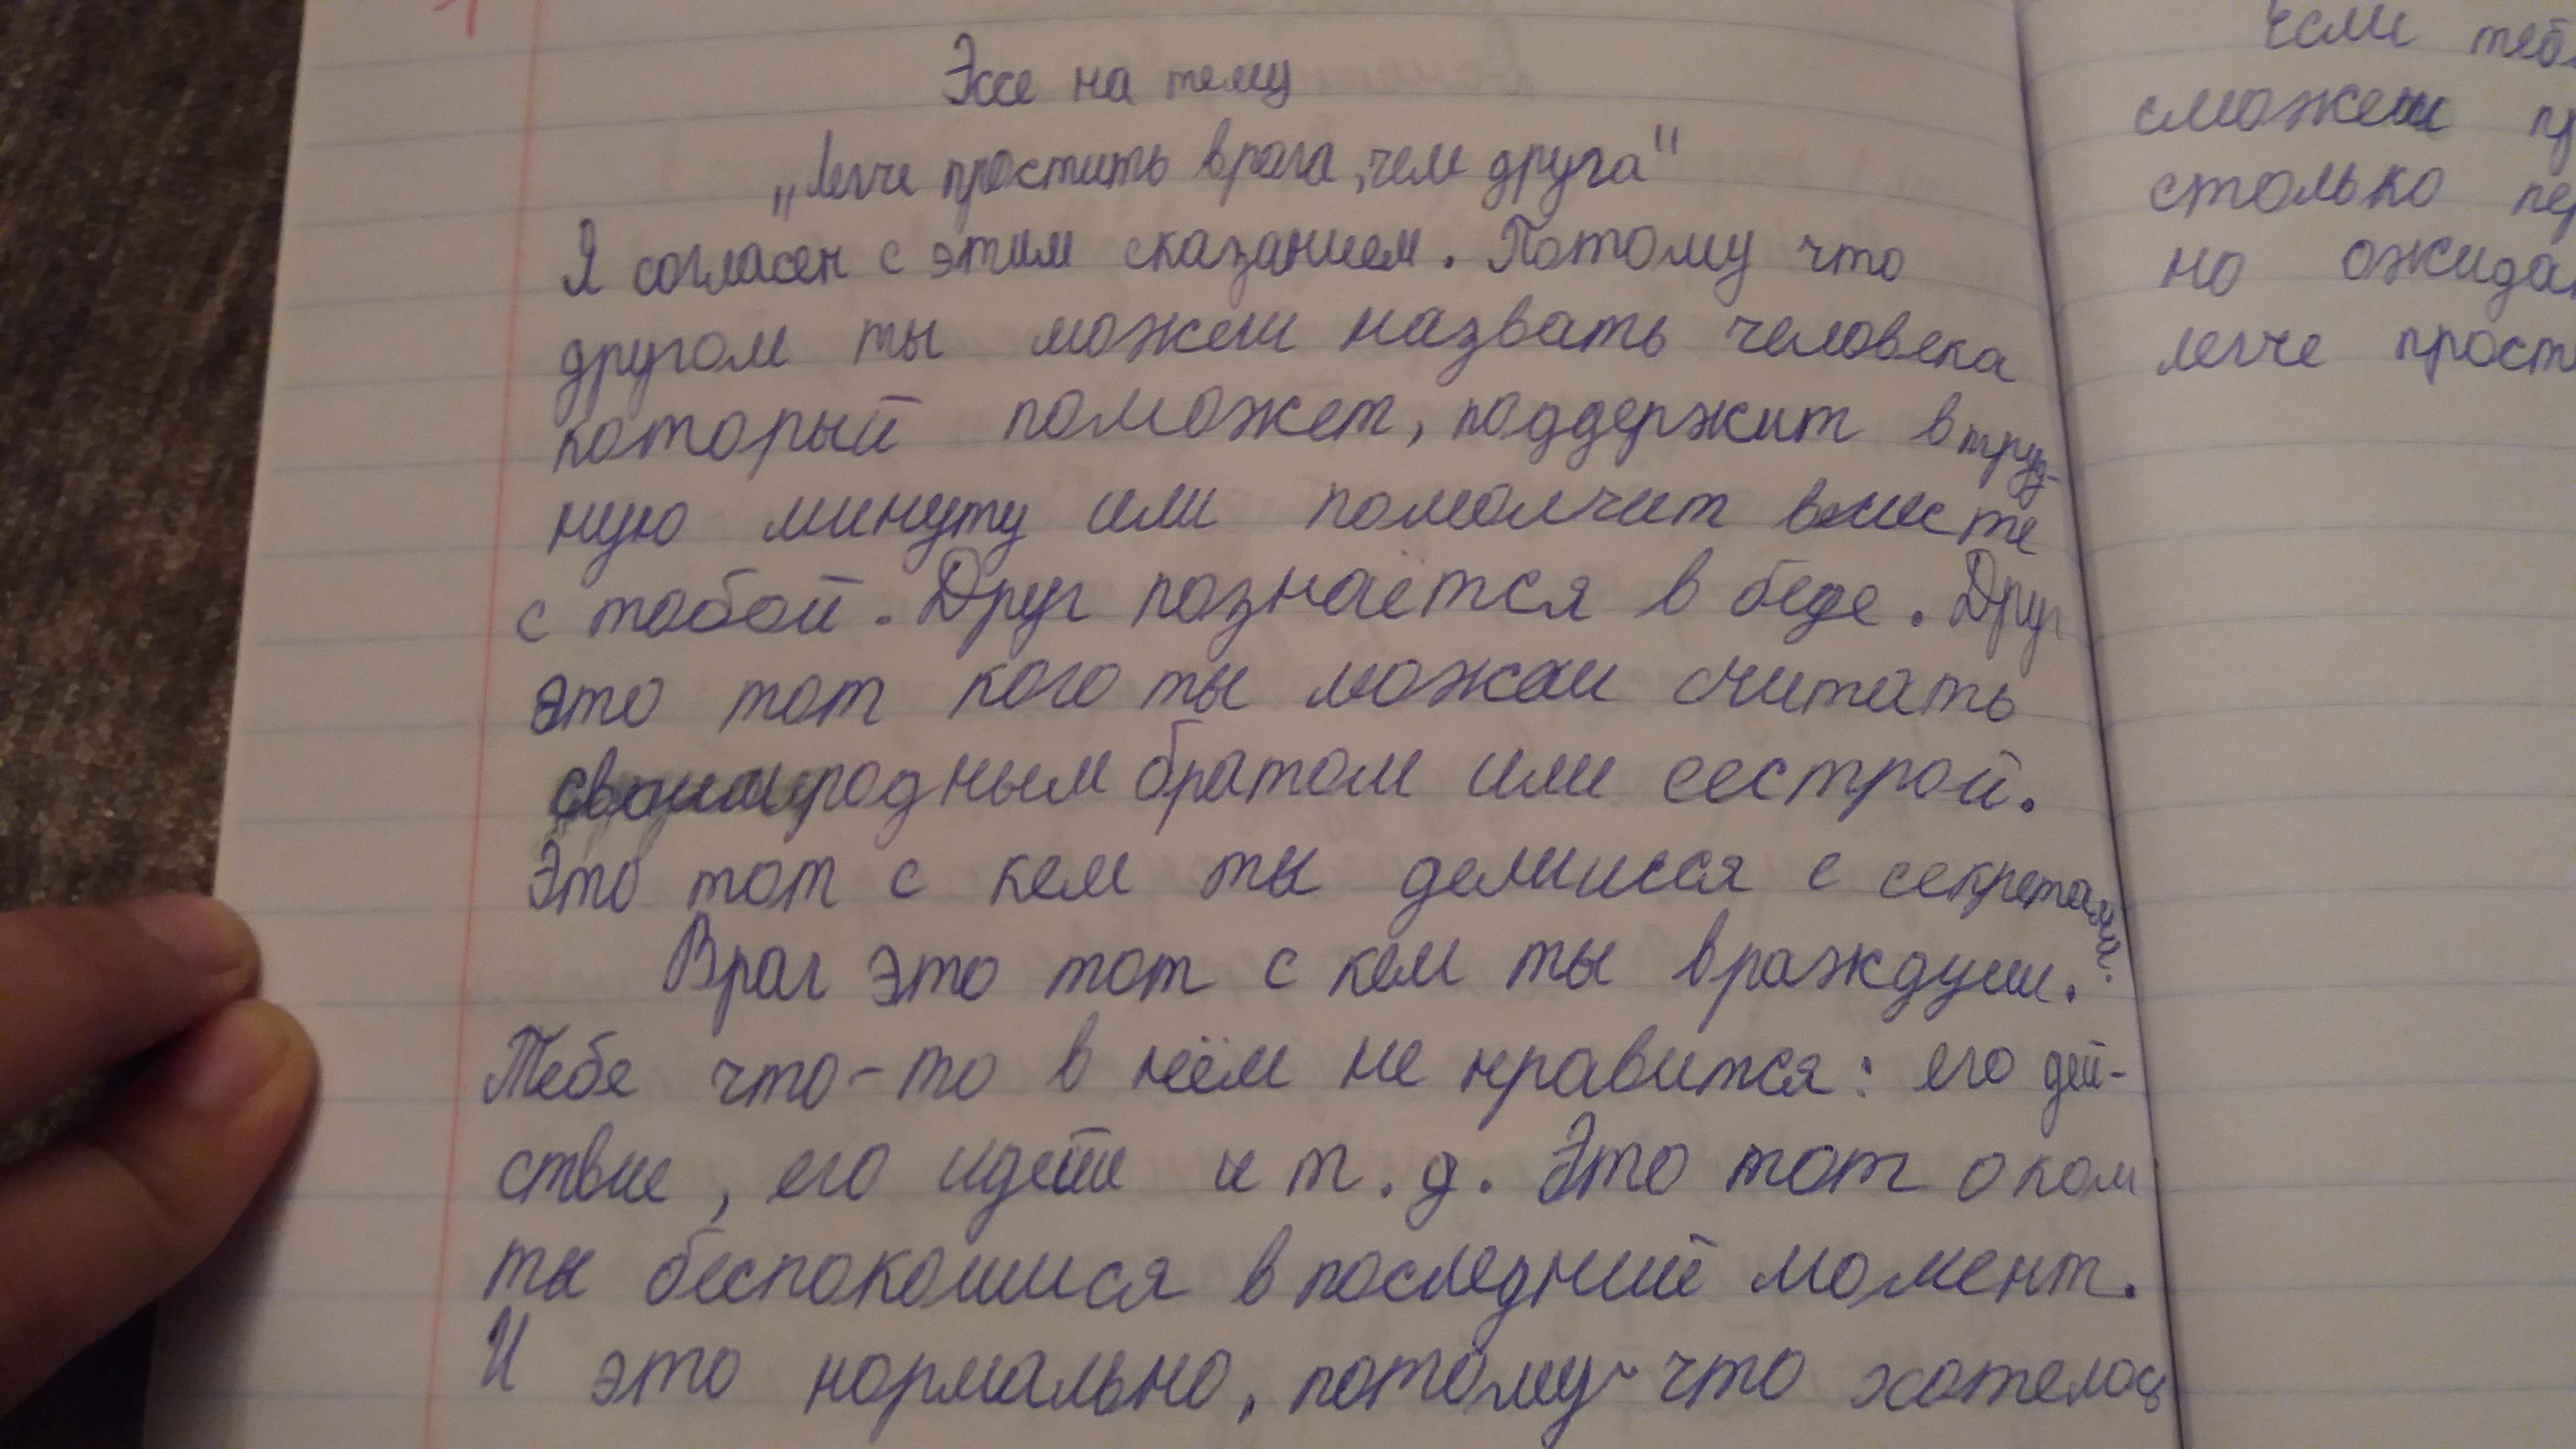 Эссе на тему
„Легче простить врага, чем друга"
Я согласен с этим сказанием. Потому что
другом ты можеш назвать человека
который поможет, поддержит в труд-
ную минуту или помолчит вместе
с тобой. Друг познаётся в беде. Друг
это тот кого ты можеш считать
своим родным братом или сестрой.
Это тот с кем ты делишся с секретами.
Враг это тот с кем ты враждуеш.
Тебе что-то в нём не нравится: его дей-
ствие, его идеи и т.д. Это тот о ком
ты беспокоишся в последний момент.
И это нормально, потому-что хотелось
сможеш
столько
но
легче